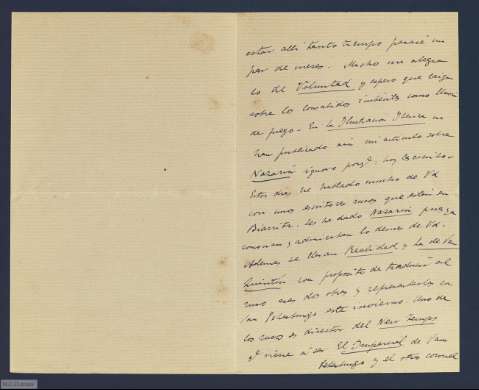 estar allí tanto tiempo pasaré un
par de meses. Mucho me alegra
lo de Voluntad y espero que caiga
sobre los consabidos como lluvia
de fuego. En la Ilustración Ibérica no
han publicado aún mi artículo sobre
Nazarín ignoro porqe. hoy escribo.
Estos días he hablado mucho de Vd
con unos escritores rusos que están en
Biarritz. les he dado Nazarín para qe
conozcan y admiren lo demás de Vd.
Además se llevan Realidad y La de San
Quintín con propósito de traducir al
ruso esas dos obras y representarlas en
San Petersburgo este invierno. Uno de
los rusos es director del New Tiempo
qe viene a ser El Imparcial de San
Petersburgo y el otro